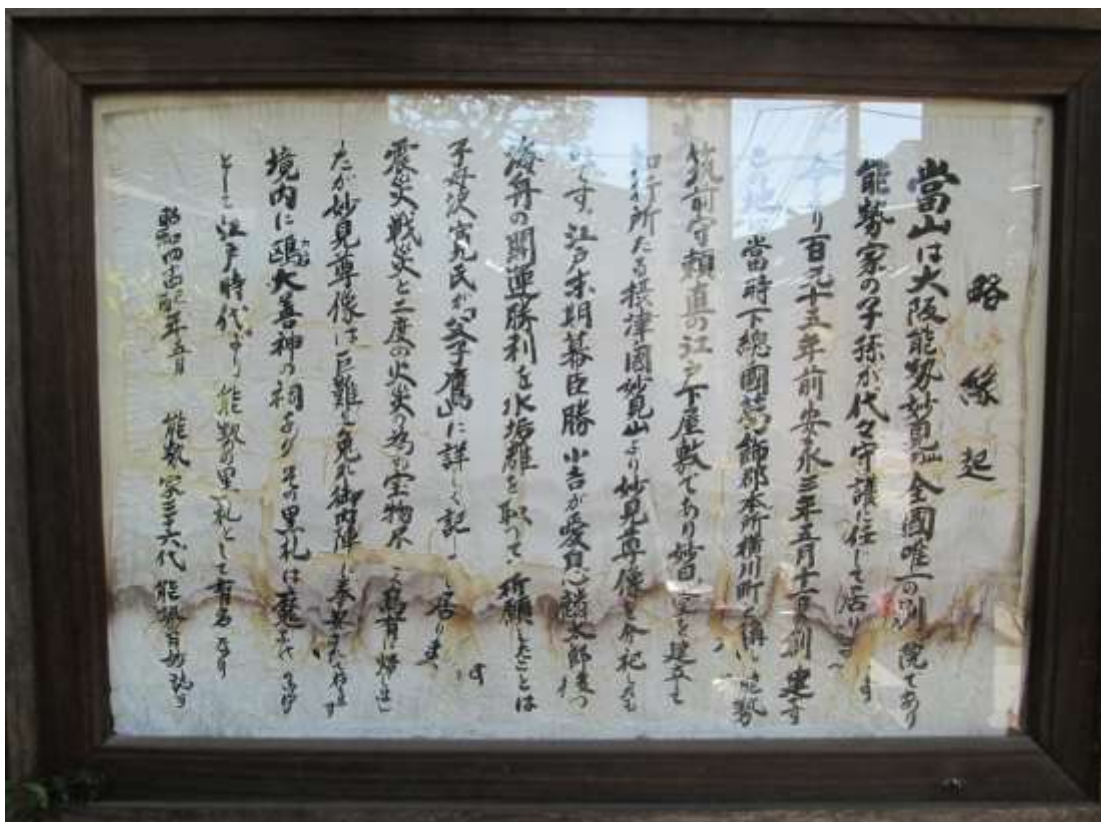 略縁起
當山は大阪能勢妙見山 全國唯一の別院であり
能勢家の子孫が代々守護に任して居ります
より百九十五年前安永三年五月十一日の創建です
地 當時下總國葛飾郡本所横川町 能勢
筑前守頼直の江戸下屋敷であり妙見 建立し
所たる摂津國妙見山より妙見尊像を分祀したも
です、江戸末期幕臣勝小吉が愛息麟太郎後の
海舟の開運勝利を水垢離を取って祈願したことは
子母沢寛氏が「父子鷹」に詳しく記し て居ります
震災戦災と二度の火災の為め宝物尽 烏有に帰しまし
たが妙見尊像は巨難を免れ御内陣に奉安
境内に鴎大善神の祠あり その黒札は
として江戸時代より能勢の黒札として有名なり
昭和四十四 年五月 能勢家三十六代 能勢